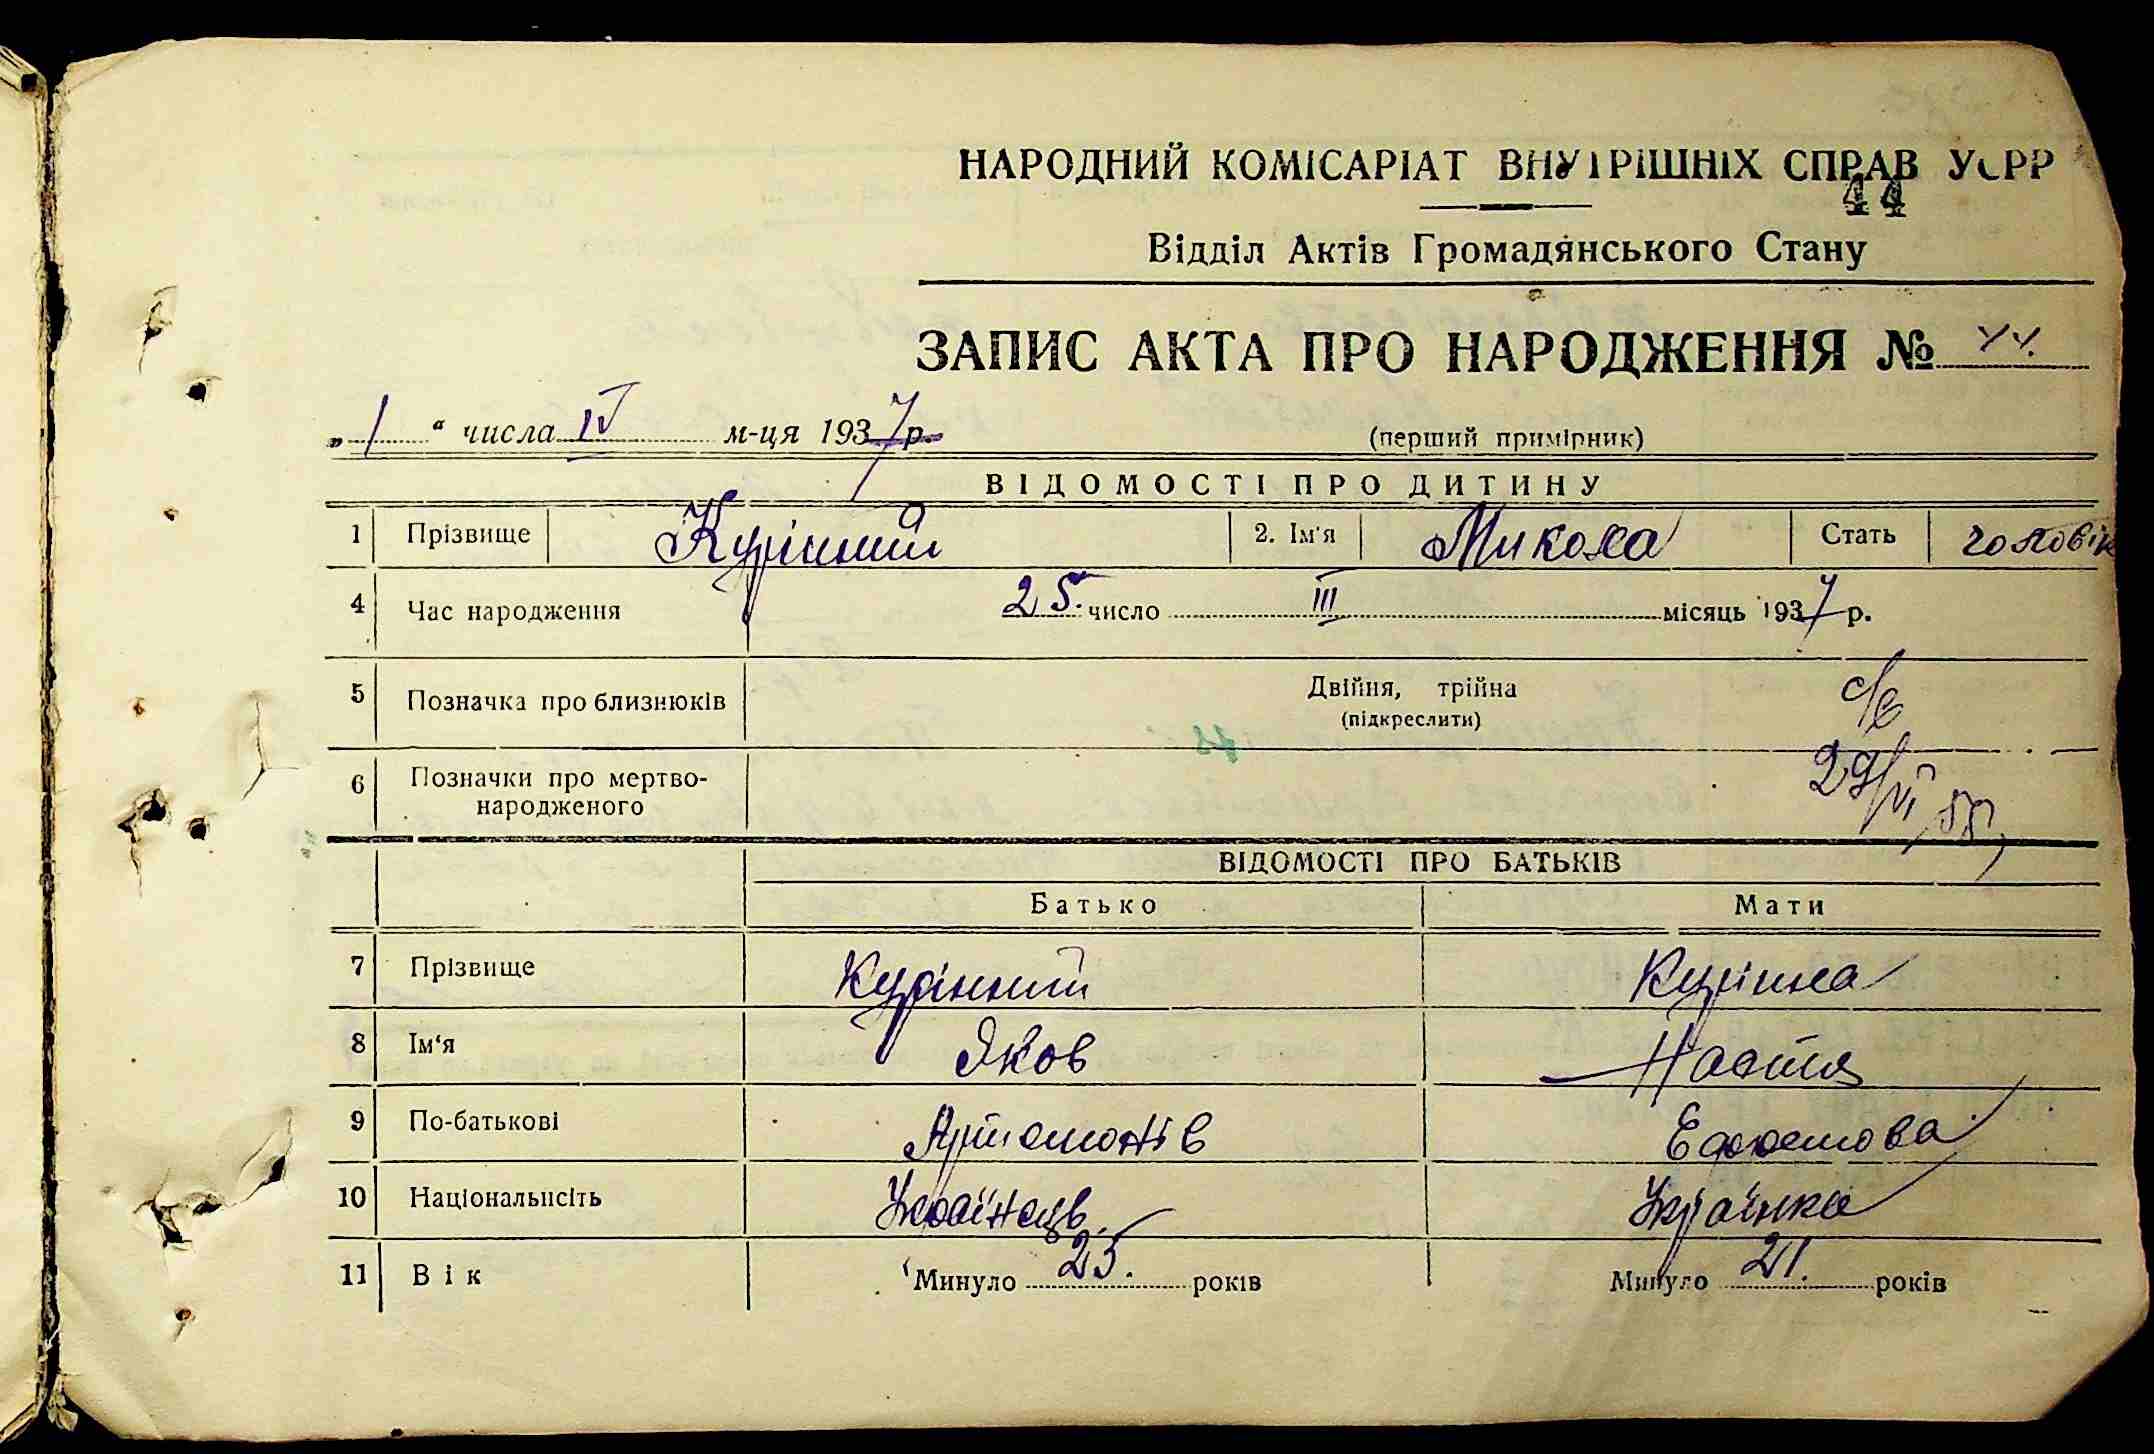 НАРОДНИЙ КОМІСАРІАТ ВНУТРІШНІХ СПРАВ УСРР
44
Відділ Актів Громадянського Стану
ЗАПИС АКТА ПРО НАРОДЖЕННЯ № 44.
„1“ числа IV м-ця 1937 р.
(перший примірник)
ВІДОМОСТІ ПРО ДИТИНУ
1 Прізвище Курінний 2. Ім'я Микола Стать чоловік
4 Час народження 25. число III місяць 1937 р.
5 Позначка про близнюків Двійня, трійна
(підкреслити)
6 Позначки про мертво-
народженого
ВІДОМОСТІ ПРО БАТЬКІВ
Батько Мати
7 Прізвище Курінний Курінна
8 Ім'я Яков Настя
9 По-батькові Артемонів
10 Національність Українець. Українка
11 Вік Минуло 25. років Минуло 21. років